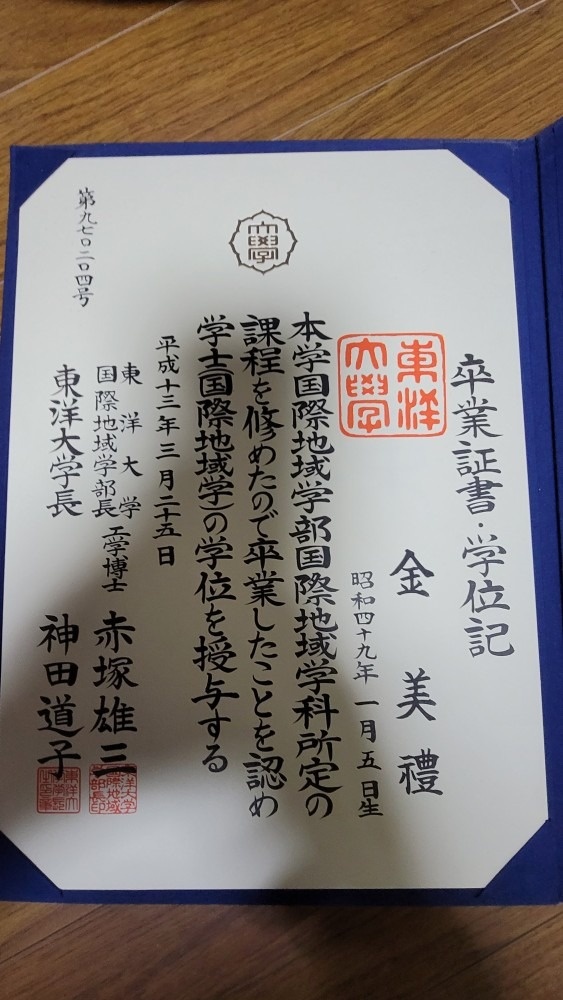 卒業証書・学位記
東洋
大学
金美禮
昭和四十九年一月五日生
本学国際地域学部国際地域学科所定の
課程を修めたので卒業したことを認め
学士(国際地域学)の学位を授与する
平成十三年三月二十五日
東洋大学
国際地域学部長 工学博士 赤塚雄三
東洋大学長 神田道子
第九七〇二〇四号
大学